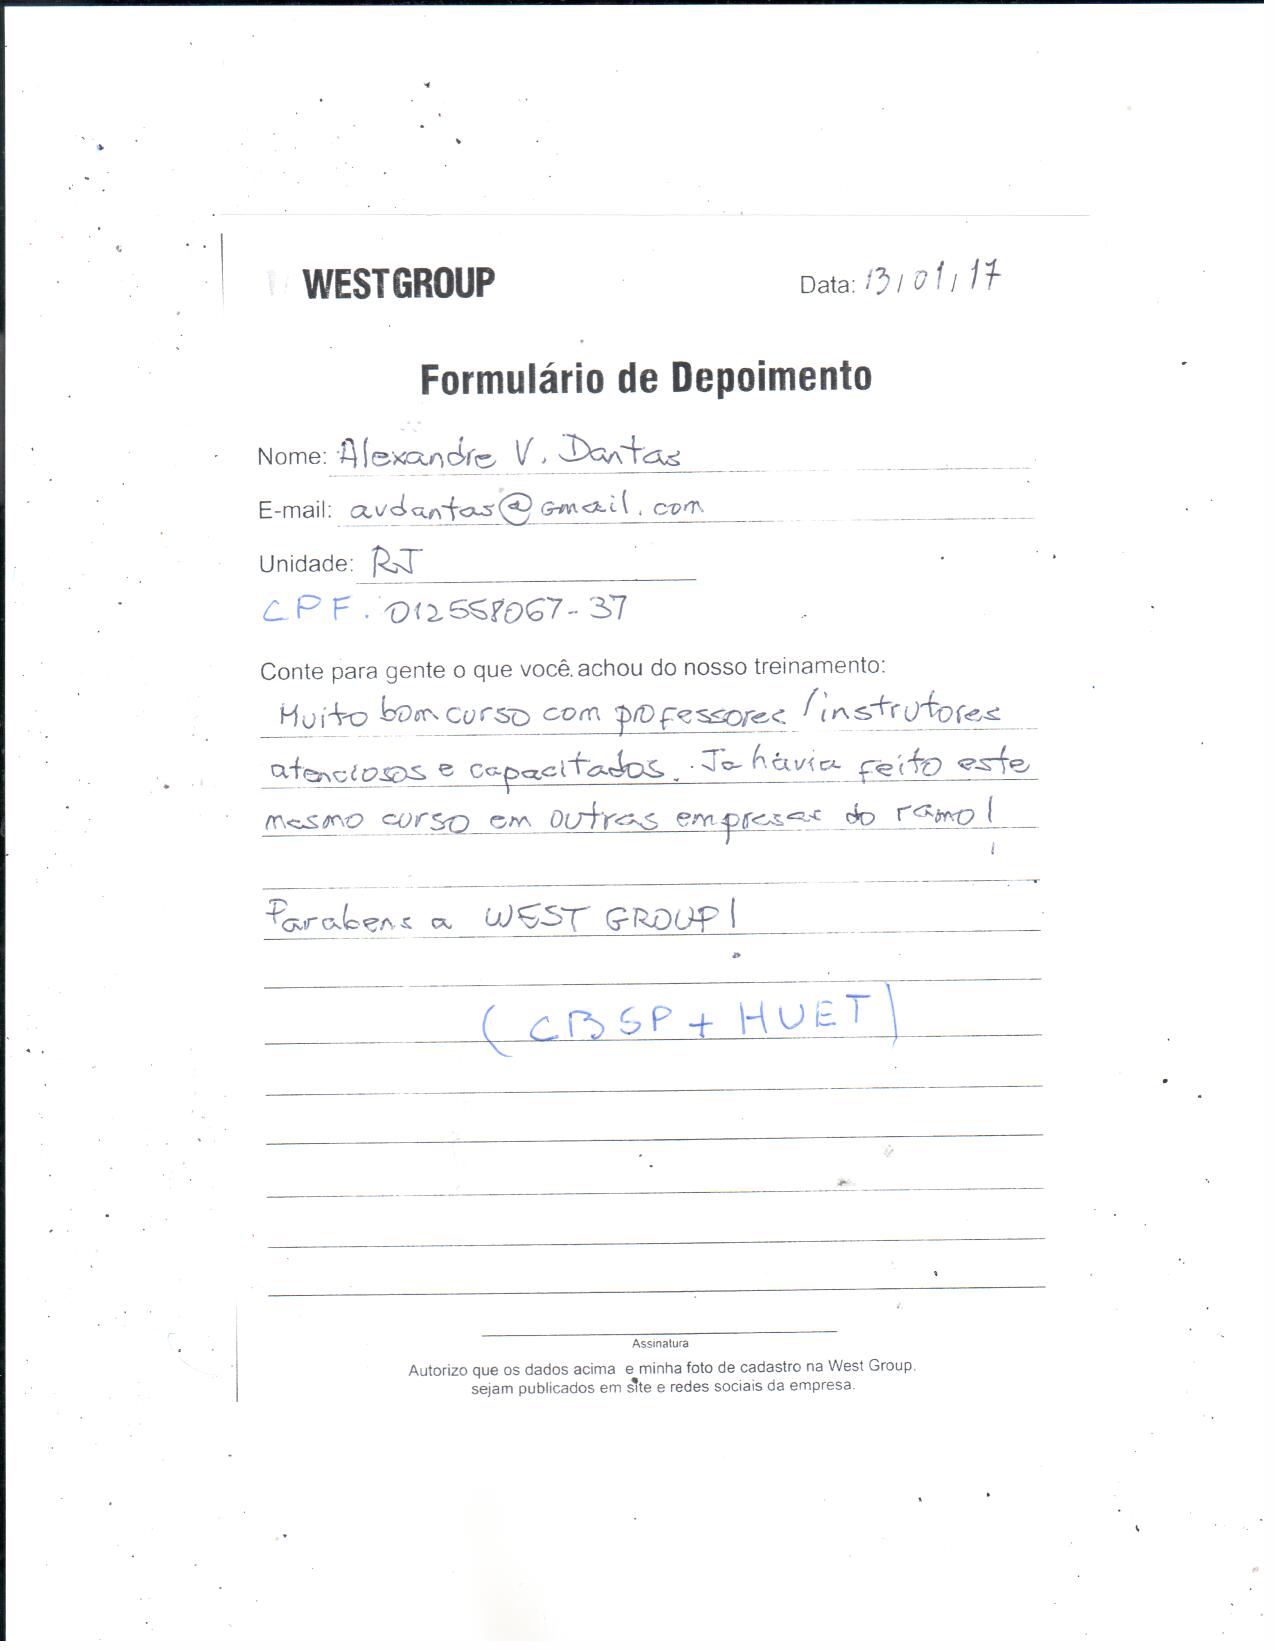 WEST GROUP
Data: 13/01/17
Formulário de Depoimento
Nome: Alexandre V. Dantas
E-mail: avdantas@gmail.com
Unidade: RJ
CPF. 012558067-37
Conte para gente o que você achou do nosso treinamento:
Muito bom curso com professores/instrutores
atenciosos e capacitados. Ja havia feito este
mesmo curso em outras empresas do ramo!
Parabens a WEST GROUP!
(CBSP + HUET)
Assinatura
Autorizo que os dados acima e minha foto de cadastro na West Group.
sejam publicados em site e redes sociais da empresa.